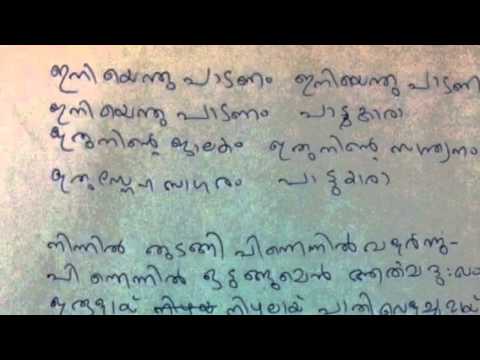 ഇനിയെന്തു പാടണം ഇനിയെന്തു പാടണ
ഇനിയെന്തു പാടണം പാട്ടുകാരാ
ഇതുനിന്റെ ജാലകം ഇതുനിന്റെ സാന്ത്വനം
ഇതുസ്നേഹസാഗരം പാട്ടുകാരാ
നിന്നിൽ തുടങ്ങി പിന്നെന്നിൽ വളർന്നു-
പിന്നെന്നിൽ ഒടുങ്ങുമെൻ ആത്മദുഃഖം
നിഴലായ് പാതി